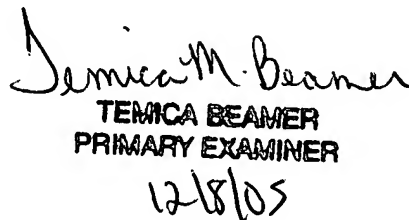 Temica M. Beamer
TEMICA BEAMER
PRIMARY EXAMINER
12/8/05